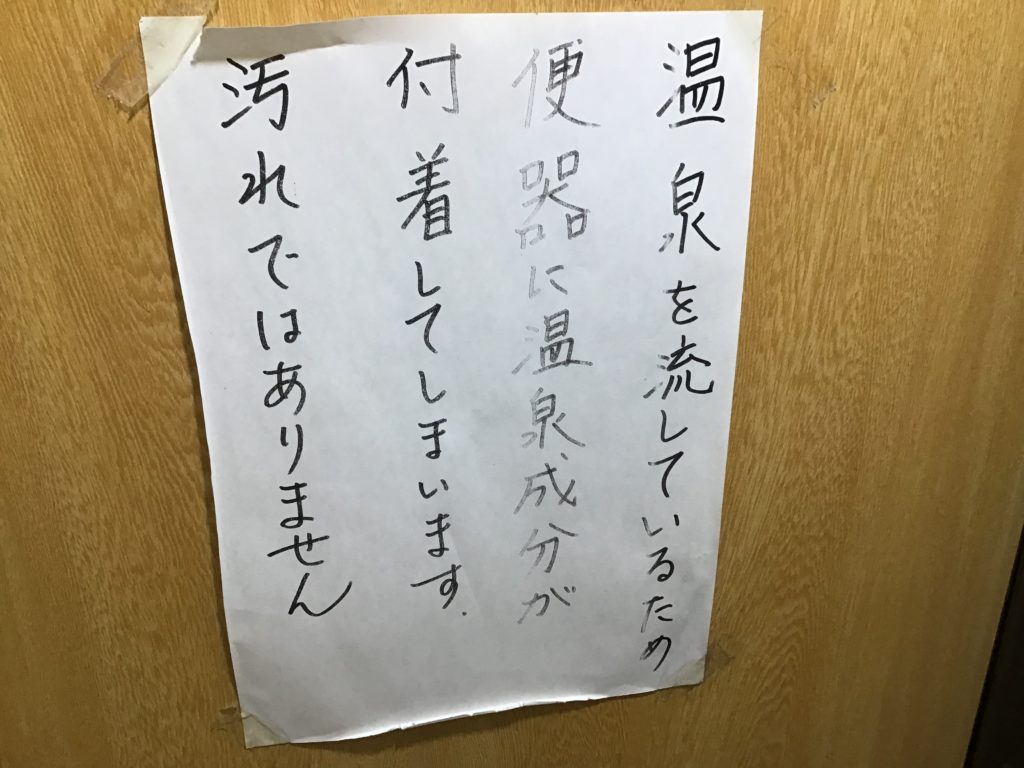 温泉を流しているため
便器に温泉成分が
付着してしまいます.
汚れではありません